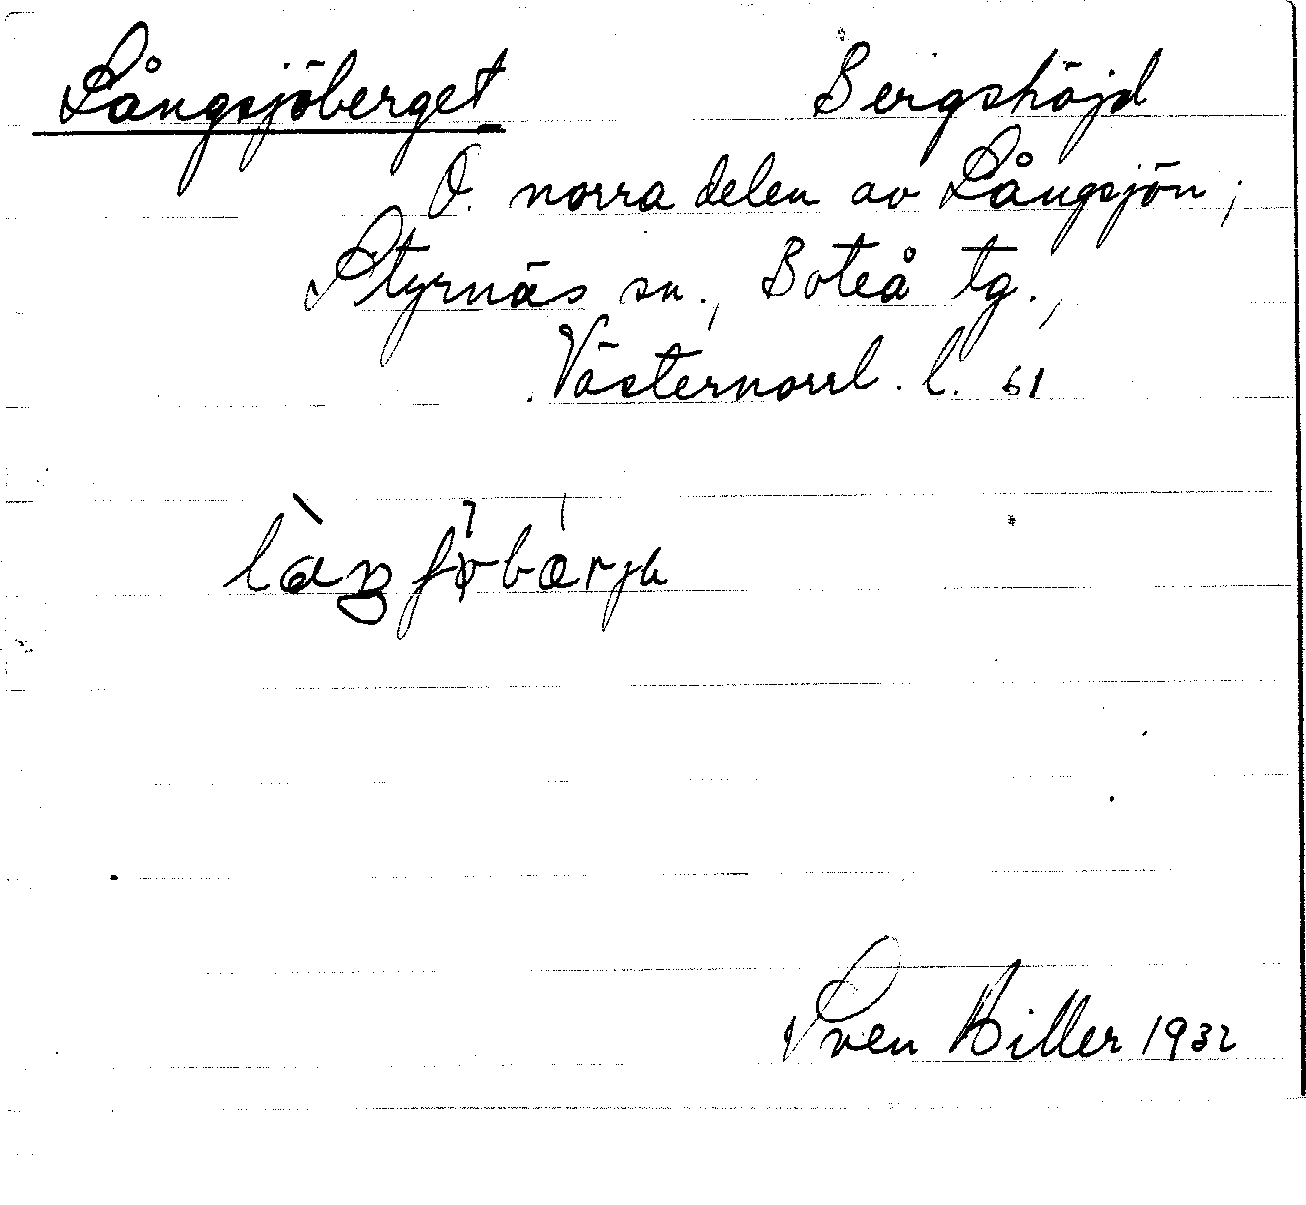 Långsjöberget Bergshöjd
Ö. norra delen av Långsjön;
Styrnäs sn., Boteå tg.,
Västernorrl. l. 61
Sven Hiller 1932